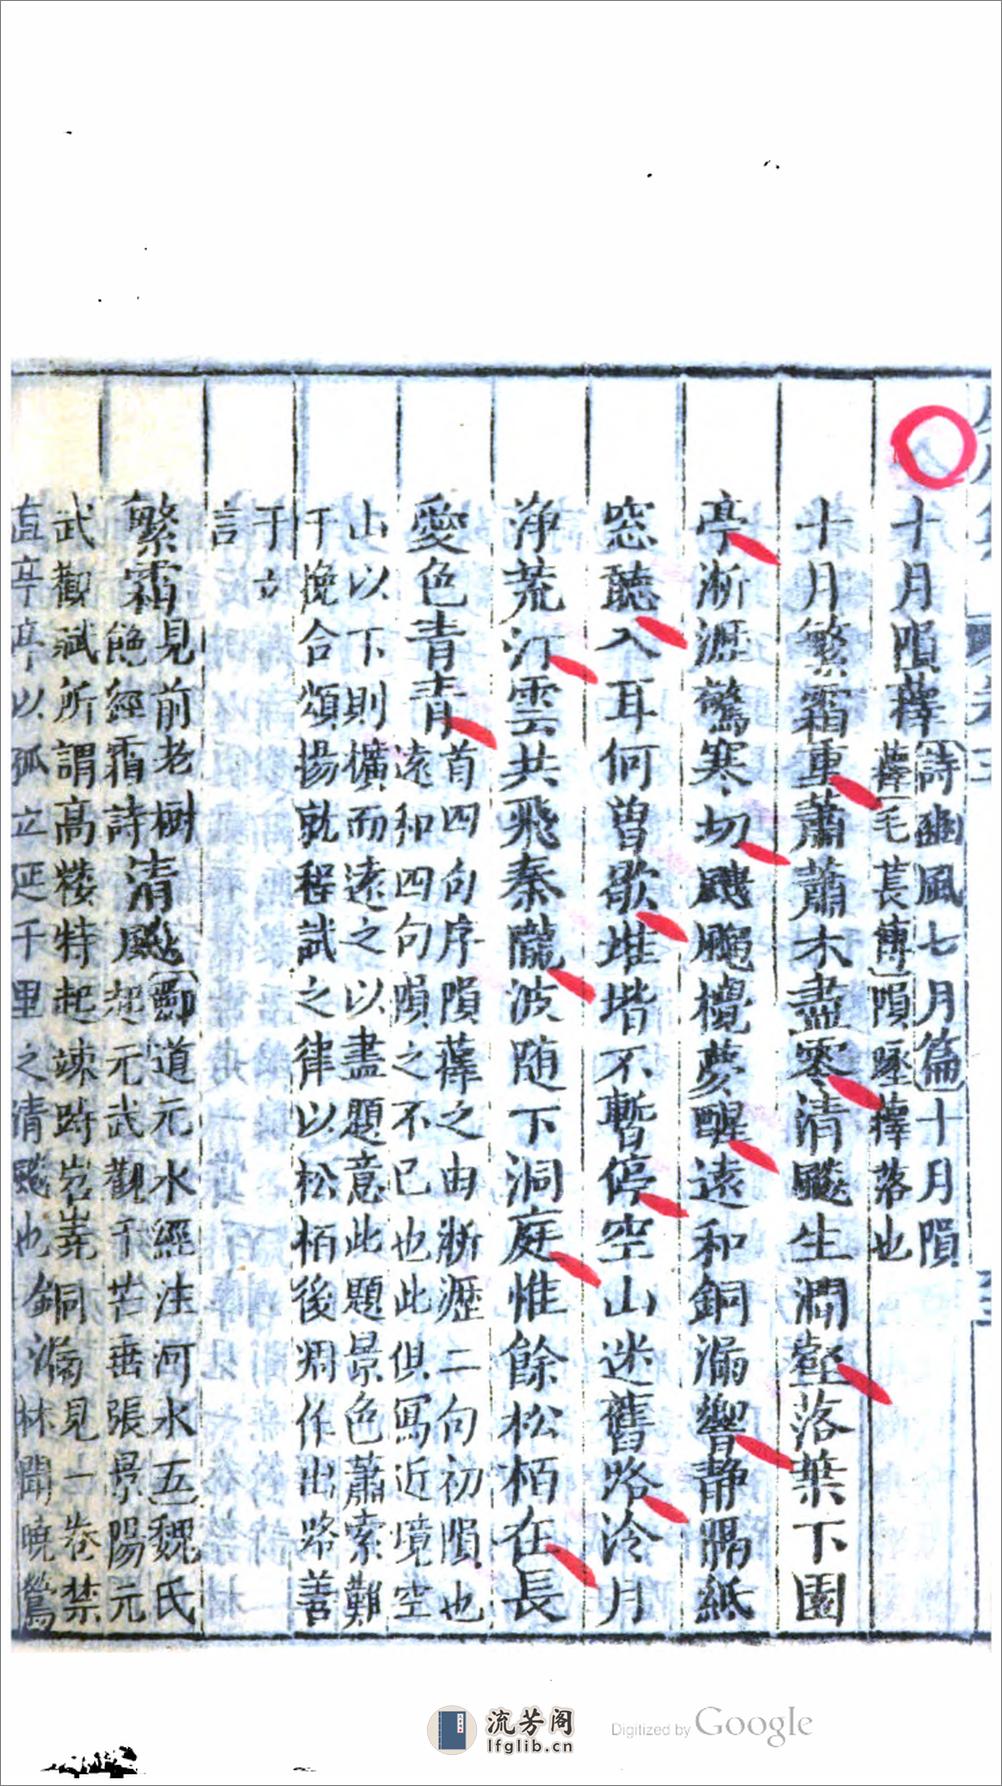 十月隕蘀
詩豳風七月篇十月隕
蘀毛萇傳隕墜蘀落也
十月繁霜重蕭蕭木盡零清飈生澗壑落葉下園
亭淅瀝驚寒切颼飀攪夢醒遠和銅漏響靜隔紙
窓聽入耳何曾歇堆堦不暫停空山迷舊路冷月
淨荒汀雲共飛秦隴波随下洞庭惟餘松栢在長
愛色青青
首四句序隕蘀之由淅瀝二句初隕也
遠和四句隕之不已也此俱寫近境空
山以下則擴而遠之以盡題意此題景色蕭索難
于挽合頌揚就程試之律以松栢後凋作出路善
于立
言
繁霜
見前老樹
飽經霜詩
清飈
酈道元水經注河水五魏氏
起元武觀于芒垂張景陽元
武觀賦所謂高樓特起竦跱岧嶤
直亭亭以孤立延千里之清飈也
銅漏
見一卷禁
林聞曉鶯
流芳阁
lfglib.cn
Digitized by Google